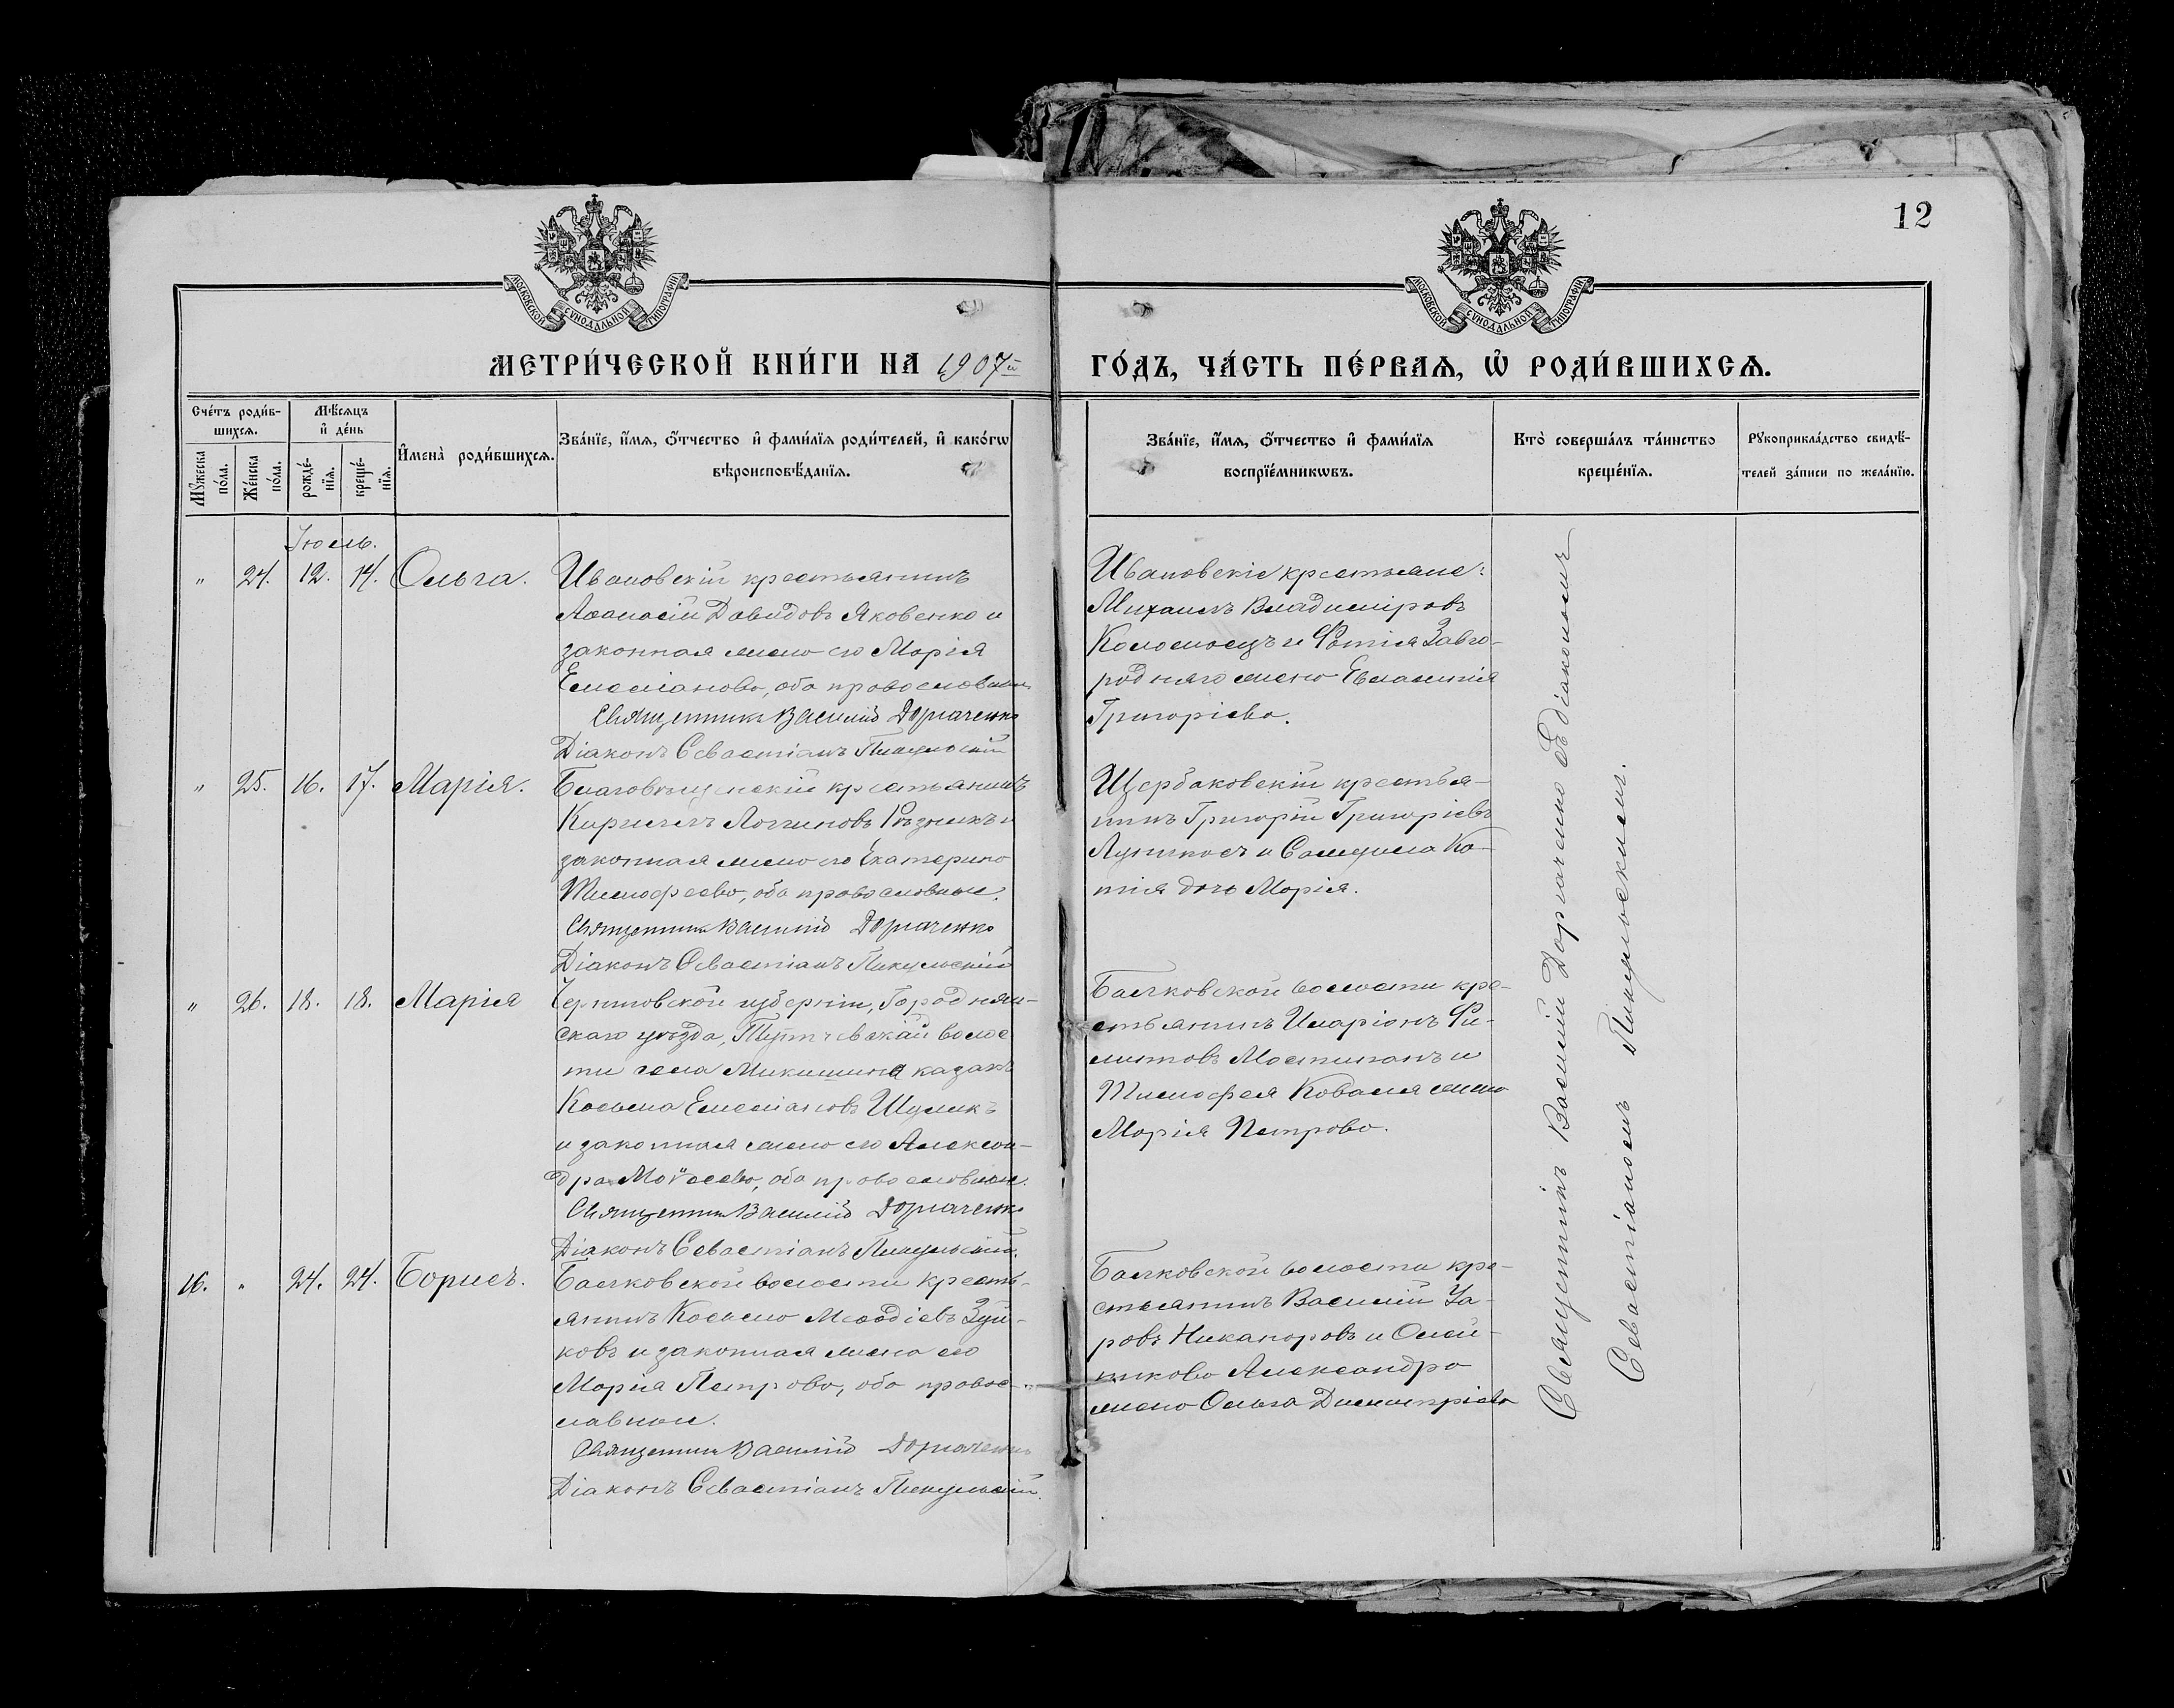 12
МОСКОВСКОЙ СУНОДАЛЬНОЙ ТИПОГРАФІИ
МОСКОВСКОЙ СУНОДАЛЬНОЙ ТИПОГРАФІИ
МЕТРИ́ЧЕСКОЙ КНИ́ГИ НА 1907й ГО́ДЪ, ЧА́СТЬ ПЕ́РВАѦ, Ѡ҆ РОДИ́ВШИХСѦ.
Сче́тъ роди́в-
шихсѧ.
Мꙋ́жеска
по́ла.
Же́нска
по́ла.
Мѣ́сѧцъ
и҆ де́нь
рожде́-
нїѧ.
креще́-
нїѧ.
И҆мена̀ роди́вшихсѧ.
Зва́нїе, и҆́мѧ, ѻ҆́тчество и҆ фами́лїѧ роди́телей, и҆ како́гѡ
вѣроисповѣ́данїѧ.
Зва́нїе, и҆́мѧ, ѻ҆́тчество и҆ фами́лїѧ
воспрїе́мникѡвъ.
Кто̀ соверша́лъ та́инство
креще́нїѧ.
Рꙋкоприкла́дство свидѣ́-
телей за́писи по жела́нїю.
Іюль.
" 24. 12. 14. Ольга.
Ивановскій крестьянинъ
Аѳанасій Давидовъ Яковенко и
законная жена его Марія
Емеліанова, оба православные
Священникъ Василій Дориаченко
Діаконъ Севастіанъ Пикульскій
Ивановскіе крестьяне:
Михаилъ Владиміровъ
Коломоецъ и Фотія Завго-
родняго жена Евлампія
Григоріева.
" 25. 16. 17. Марія.
Благовѣщенскій крестьянинъ
Кириллъ Логгиновъ Рѣзникъ и
законная жена его Екатерина
Тимофеева, оба православные.
Священникъ Василій Дориаченко
Діаконъ Севастіанъ Пикульскій
Щербаковскій крестья-
нинъ Григорій Григоріевъ
и Самуила Ко-
тія дочь Марія.
" 26. 18. 18. Марія
Черниговской губерніи, Городнян-
скаго уѣзда, волос
ти села казакъ
Косьма Емеліановъ Шумикъ
и законная жена его Алексан-
дра Моѵсеева, оба православные.
Священникъ Василій Дориаченко
Діаконъ Севастіанъ Пикульскій.
Балковской волости кре-
стьянинъ Иларіонъ Фи-
липовъ и
Тимофея Коваля жена
Марія Петрова.
16. " 24. 24. Борисъ.
Балковской волости кресть-
янинъ Косьма Меѳодіевъ Зуй-
ковъ и законная жена его
Марія Петрова, оба правос-
лавные.
Священникъ Василій Дориаченко
Діаконъ Севастіанъ Пикульскій.
Балковской волости кре-
стьянинъ Василій За-
ровъ Никаноровъ и Олей-
никова Александра
жена Ольга Димитріева
Священникъ Василій Дориаченко съ діакономъ
Севастіаномъ Пикульскимъ.